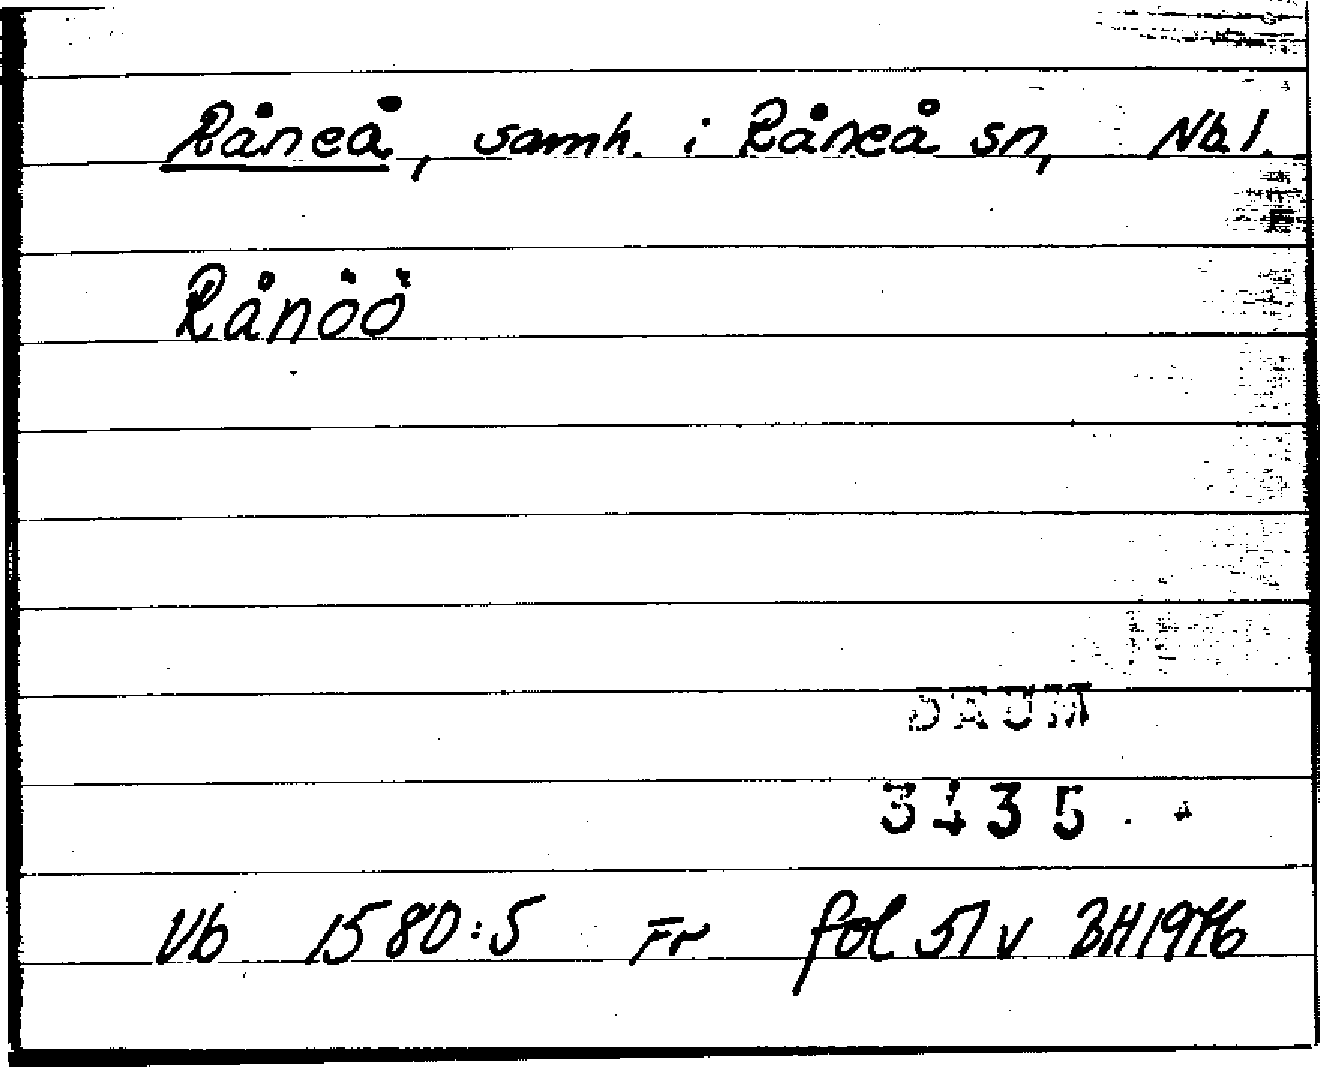 Råneå, samh. i Råneå sn, Nb.l.
Rånöö
DAUM
3435
Vb 1580:5 Fr fol 51 v BH1976